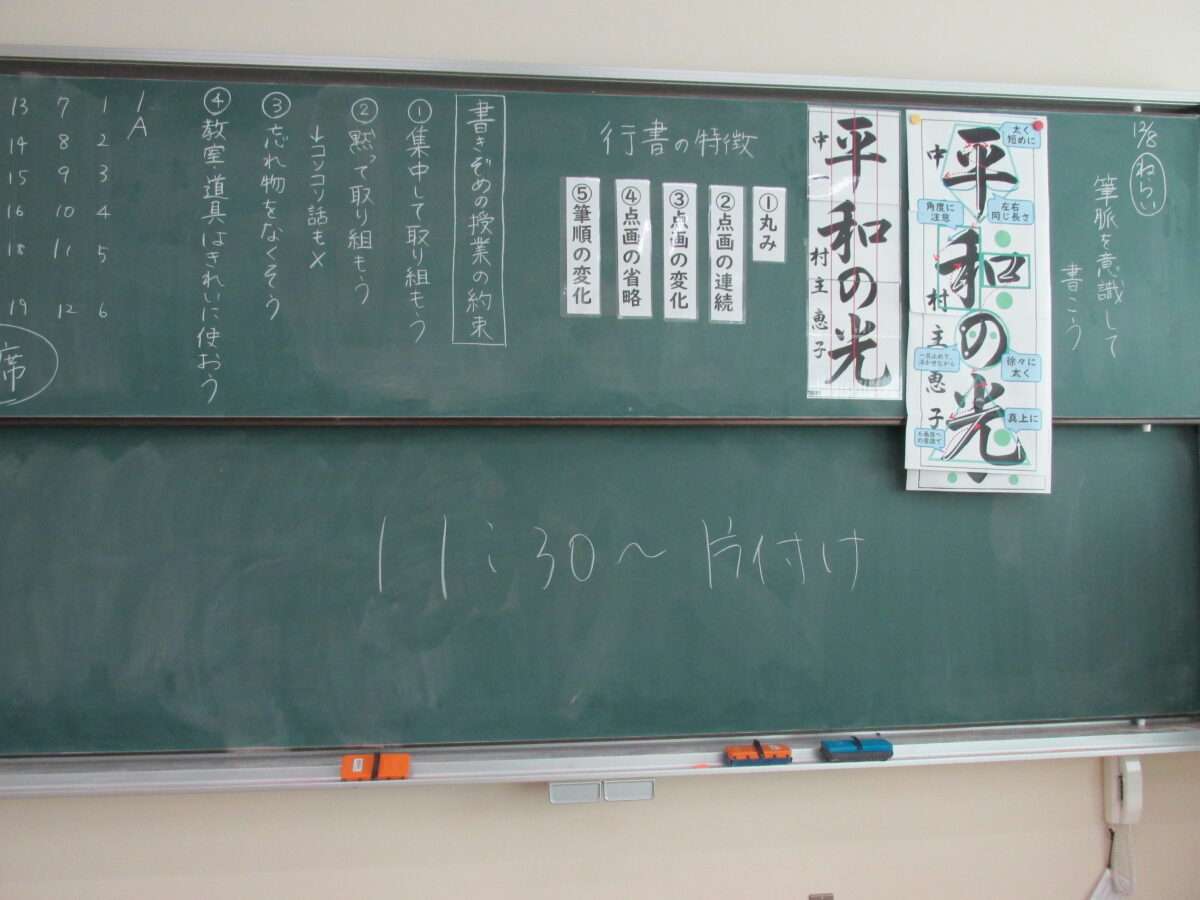 12/8
ねらい
筆脈を意識して
書こう
平和の光
中一 村主恵子
太く
短めに
左右
同じ長さ
角度に
注意
徐々に
太く
一旦止めて、
浮かせながら
真上に
6画目へ
の意識で
平和の光
中一 村主恵子
行書の特徴
①丸み
②点画の連続
③点画の変化
④点画の省略
⑤筆順の変化
書きぞめの授業の約束
①集中して取り組もう
②黙って取り組もう
↓コソコソ話も×
③忘れ物をなくそう
④教室・道具はきれいに使おう
1A
1 2 3 4 5 6
7 8 9 10 11 12
13 14 15 16 18 19
席
11:30〜片付け